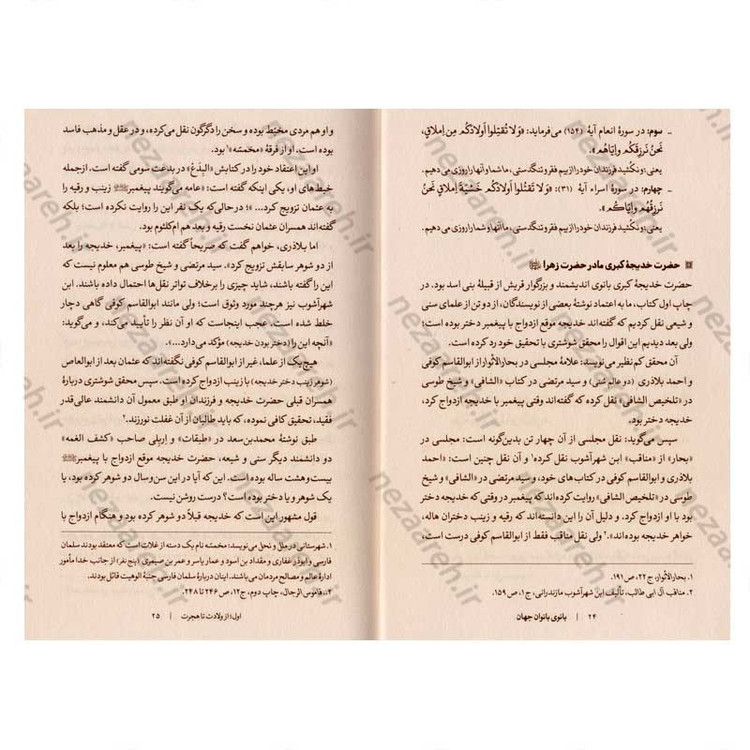 ـ سوم: در سورهٔ انعام آیهٔ (۱۵۴) می‌فرماید: «وَلا تُقتِلوا أولادَکُم مِن إملاقٍ،
نَحنُ نَرزُقُکُم وإیّاهُم».
یعنی: ونکُشید فرزندان خود را از بیم فقر و تنگدستی، ما شما و آنها را روزی می‌دهیم.
ـ چهارم: در سورهٔ اسراء آیهٔ (۳۱): «وَ لا تَقتُلُوا أولادَکُم خَشیَةَ إملاقٍ نَحنُ
نَرزُقُهُم وإیّاکُم».
یعنی: ونکُشید فرزندان خود را از بیم فقر و تنگدستی، ما آنها و شما را روزی می‌دهیم.
حضرت خدیجهٔ کبری مادر حضرت زهرا
حضرت خدیجهٔ کبری بانوی اندیشمند و بزرگوار قریش از قبیلهٔ بنی اسد بود. در
چاپ اول کتاب، ما به اعتماد نوشتهٔ بعضی از نویسندگان، از دو تن از علمای سنی
و شیعی نقل کردیم که گفته‌اند خدیجه موقع ازدواج با پیغمبر دختر بوده است؛
ولی بعد دیدیم این اقوال را محقق شوشتری با تحقیق خود رد کرده است.
آن محقق کم نظیر می‌نویسد: علامهٔ مجلسی در بحارالأنوار از ابوالقاسم کوفی
و احمد بلاذری (دو عالم سُنی) و سید مرتضی در کتاب «الشافی» و شیخ طوسی
در «تلخیص الشافی» نقل کرده که گفته‌اند وقتی پیغمبر با خدیجه ازدواج کرد،
خدیجه دختر بود.
سپس می‌گوید: نقل مجلسی از آن چهار تن بدین‌گونه است: مجلسی در
«بحار» از «مناقب» ابن شهرآشوب نقل کرده۱ و آن نقل چنین است: «احمد
بلاذری و ابوالقاسم کوفی در کتاب‌های خود، و سید مرتضی در «الشافی» و شیخ
طوسی در «تلخیص الشافی» روایت کرده‌اند که پیغمبر در وقتی که خدیجه دختر
بود با او ازدواج کرد. و دلیل آن را این دانسته‌اند که رقیه و زینب دختران هاله،
خواهر خدیجه بوده‌اند».۲ ولی نقل مناقب فقط از ابوالقاسم کوفی درست است،
۱. بحارالأنوار، ج۲۲، ص ۱۹۱.
۲. مناقب آل ابی طالب، تألیف ابن شهرآشوب مازندرانی، ج۱، ص ۱۵۹.
۲۴ | بانوی بانوان جهان
و او هم مردی مخبّط بوده و سخن را دگرگون نقل می‌کرده، و در عقل و مذهب فاسد
بوده است. او از فرقهٔ «مخمّسه»۱ بود.
او این اعتقاد خود را در کتابش «البِدَع» در بدعت سومی گفته است. از جمله
خبط‌های او، یکی اینکه گفته است: «عامه می‌گویند پیغمبر زینب و رقیه را
به عثمان تزویج کرد...»؛ در حالی‌که یک نفر این را روایت نکرده است؛ بلکه
گفته‌اند همسران عثمان نخست رقیه و بعد هم ام‌کلثوم بود.
اما بلاذری، خواهم گفت که صریحاً گفته است: «پیغمبر، خدیجه را بعد
از دو شوهر سابقش تزویج کرد». سید مرتضی و شیخ طوسی هم معلوم نیست که
این را گفته باشند، شاید چیزی را برخلاف تواتر نقل‌ها احتمال داده باشند. ابن
شهرآشوب نیز هرچند مورد وثوق است؛ ولی مانند ابوالقاسم کوفی گاهی دچار
خلط شده است. عجب اینجاست که او آن نظر را تأیید می‌کند، و می‌گوید:
«آنچه این را (دختر بودن خدیجه) مؤکد می‌دارد...».
هیچ‌یک از علما، غیر از ابوالقاسم کوفی نگفته‌اند که عثمان بعد از ابوالعاص
(شوهر زینب دختر خدیجه) با زینب ازدواج کرده است. سپس محقق شوشتری دربارهٔ
همسران قبلی حضرت خدیجه و فرزندان او طبق معمول آن دانشمند عالی قدر
فقید، تحقیق کافی نموده، که باید طالبان از آن غفلت نورزند.۲
طبق نوشتهٔ محمدبن‌سعد در «طبقات» و اربِلی صاحب «کشف الغمه»
دو دانشمند دیگر سنی و شیعه، حضرت خدیجه موقع ازدواج با پیغمبر
بیست‌وهشت ساله بوده است. این که آیا در این سن‌وسال دو شوهر کرده بود و یا
یک شوهر و یا دختر بوده است؟ درست روشن نیست.
قول مشهور این است که خدیجه قبلاً دو شوهر کرده بود و هنگام ازدواج با
۱. شهرستانی در ملل و نحل می‌نویسد: مخمّسه نام یک دسته از غلات است که معتقد بودند سلمان
فارسی و ابوذر غفاری و مقداد بن اسود و عمار یاسر و عمر بن صیمری (پنج نفر) از جانب خدا مأمور
ادارهٔ عالم و مصالح مردمان می‌باشند. اینان دربارهٔ سلمان فارسی جنبهٔ الوهیت قائل بودند.
قاموس الرجال، چاپ دوم، ج۱۲، ص ۲۴۶ تا ۲۴۸.
اول: از ولادت تا هجرت | ۲۵
nezaareh.ir